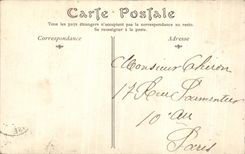 Carte Postale
Tous les pays étrangers n'acceptent pas la correspondance au recto.
Se renseigner à la poste.
Correspondance
Adresse
Monsieur Chiron
17 Rue Parmentier
10 Au
Paris